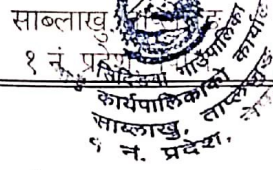 साब्लाखु,
१ नं. प्रदेश
सिदिङवा गाउँपालिका
कार्यपालिकाको कार्यालय
साब्लाखु, ताप्लेजुङ
१ नं. प्रदेश,